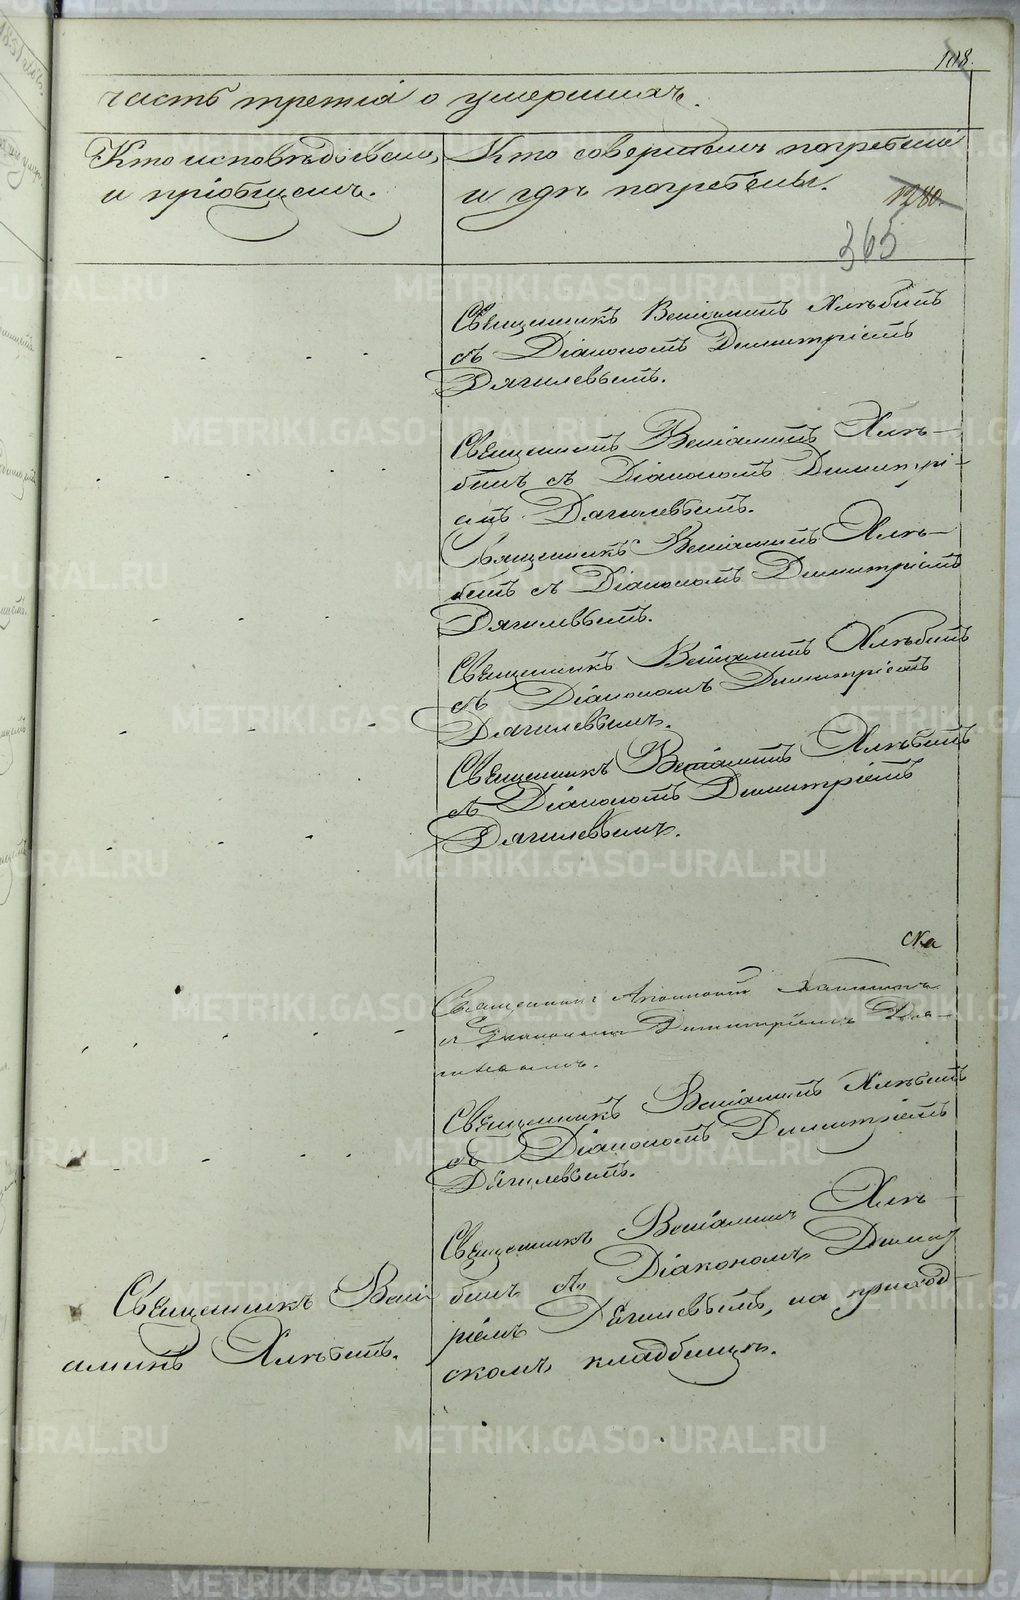 108.
часть третія о умершихъ.
Кто исповѣдывалъ
и пріобщалъ.
Кто совершалъ погребеніе
и гдѣ погребены.
1280.
365
Священникъ Веніаминъ Хлѣбинъ
съ Діакономъ Димитріемъ
Дягилевымъ.
Священникъ Веніаминъ Хлѣ-
бинъ съ Діакономъ Димитрі-
емъ Дягилевымъ.
Священникъ Веніаминъ Хлѣ-
бинъ съ Діакономъ Димитріемъ
Дягилевымъ.
Священникъ Веніаминъ Хлѣбинъ
съ Діакономъ Димитріемъ
Дягилевымъ.
Священникъ Веніаминъ Хлѣбинъ
съ Діакономъ Димитріемъ
Дягилевымъ.
На
Священникъ
съ Діакономъ Димитріемъ Дя-
гилевымъ.
Священникъ Веніаминъ Хлѣбинъ
съ Діакономъ Димитріемъ
Дягилевымъ.
Священникъ Вені
аминъ Хлѣбинъ.
Священникъ Веніаминъ Хлѣ-
бинъ съ Діакономъ Димит
ріемъ Дягилевымъ, на приход-
скомъ кладбищѣ.
METRIKI.GASO-URAL.RU